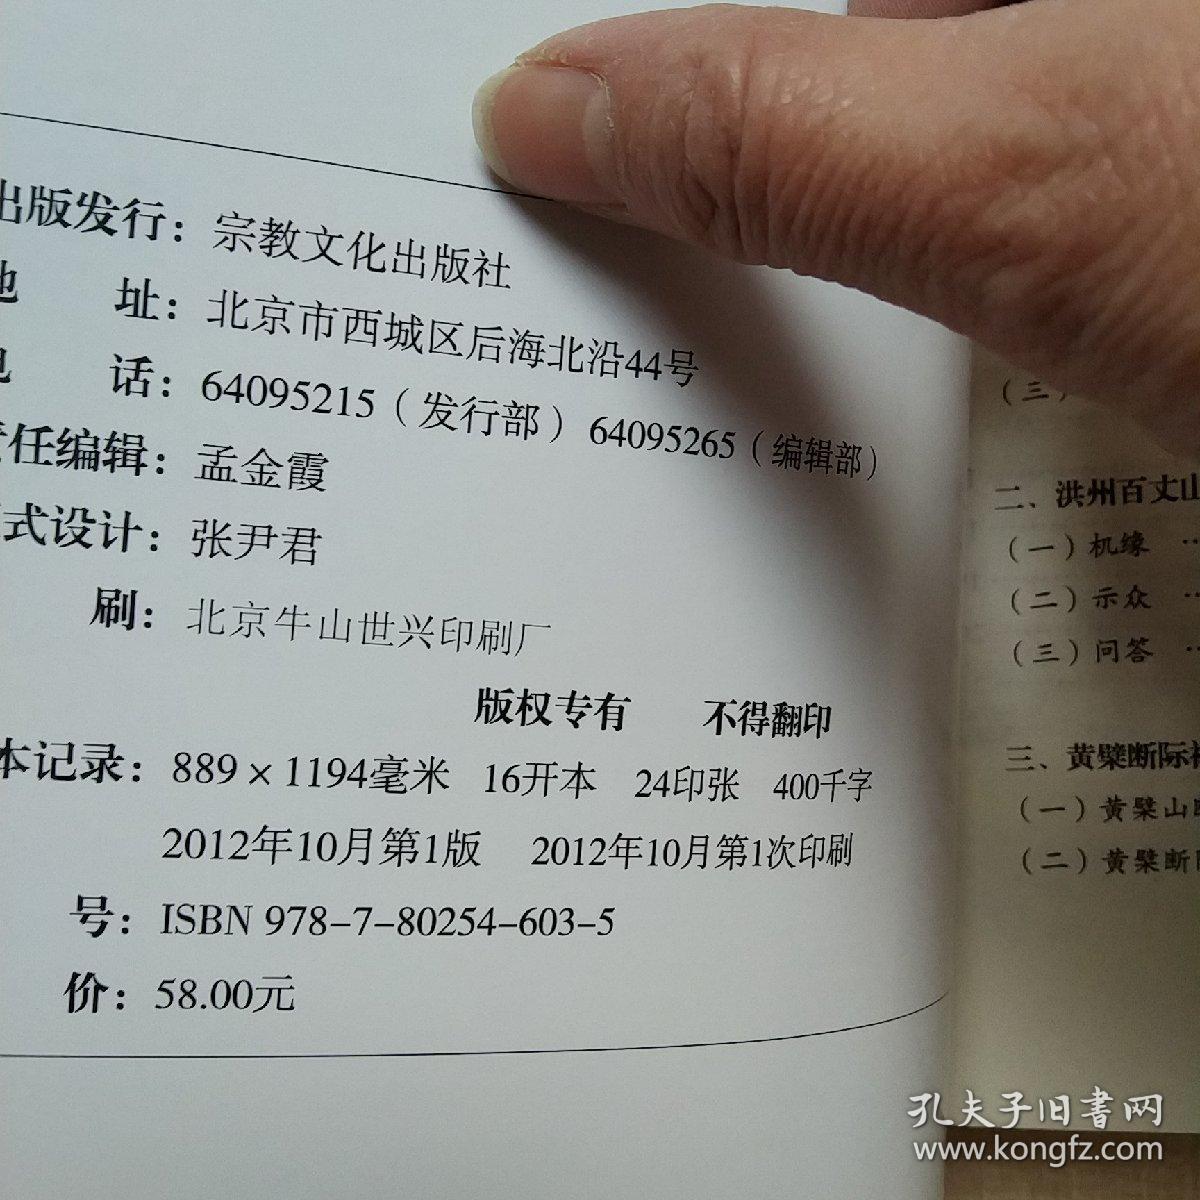 出版发行：宗教文化出版社
地 址：北京市西城区后海北沿44号
电 话：64095215（发行部）64095265（编辑部）
责任编辑：孟金霞
式设计：张尹君
刷：北京牛山世兴印刷厂
版权专有 不得翻印
本记录：889×1194毫米 16开本 24印张 400千字
2012年10月第1版 2012年10月第1次印刷
号：ISBN 978-7-80254-603-5
价：58.00元
（三）
二、洪州百丈山
（一）机缘 …
（二）示众 …
（三）问答 …
三、黄檗断际禅
（一）黄檗山断
（二）黄檗断际
孔夫子旧书网
www.kongfz.com